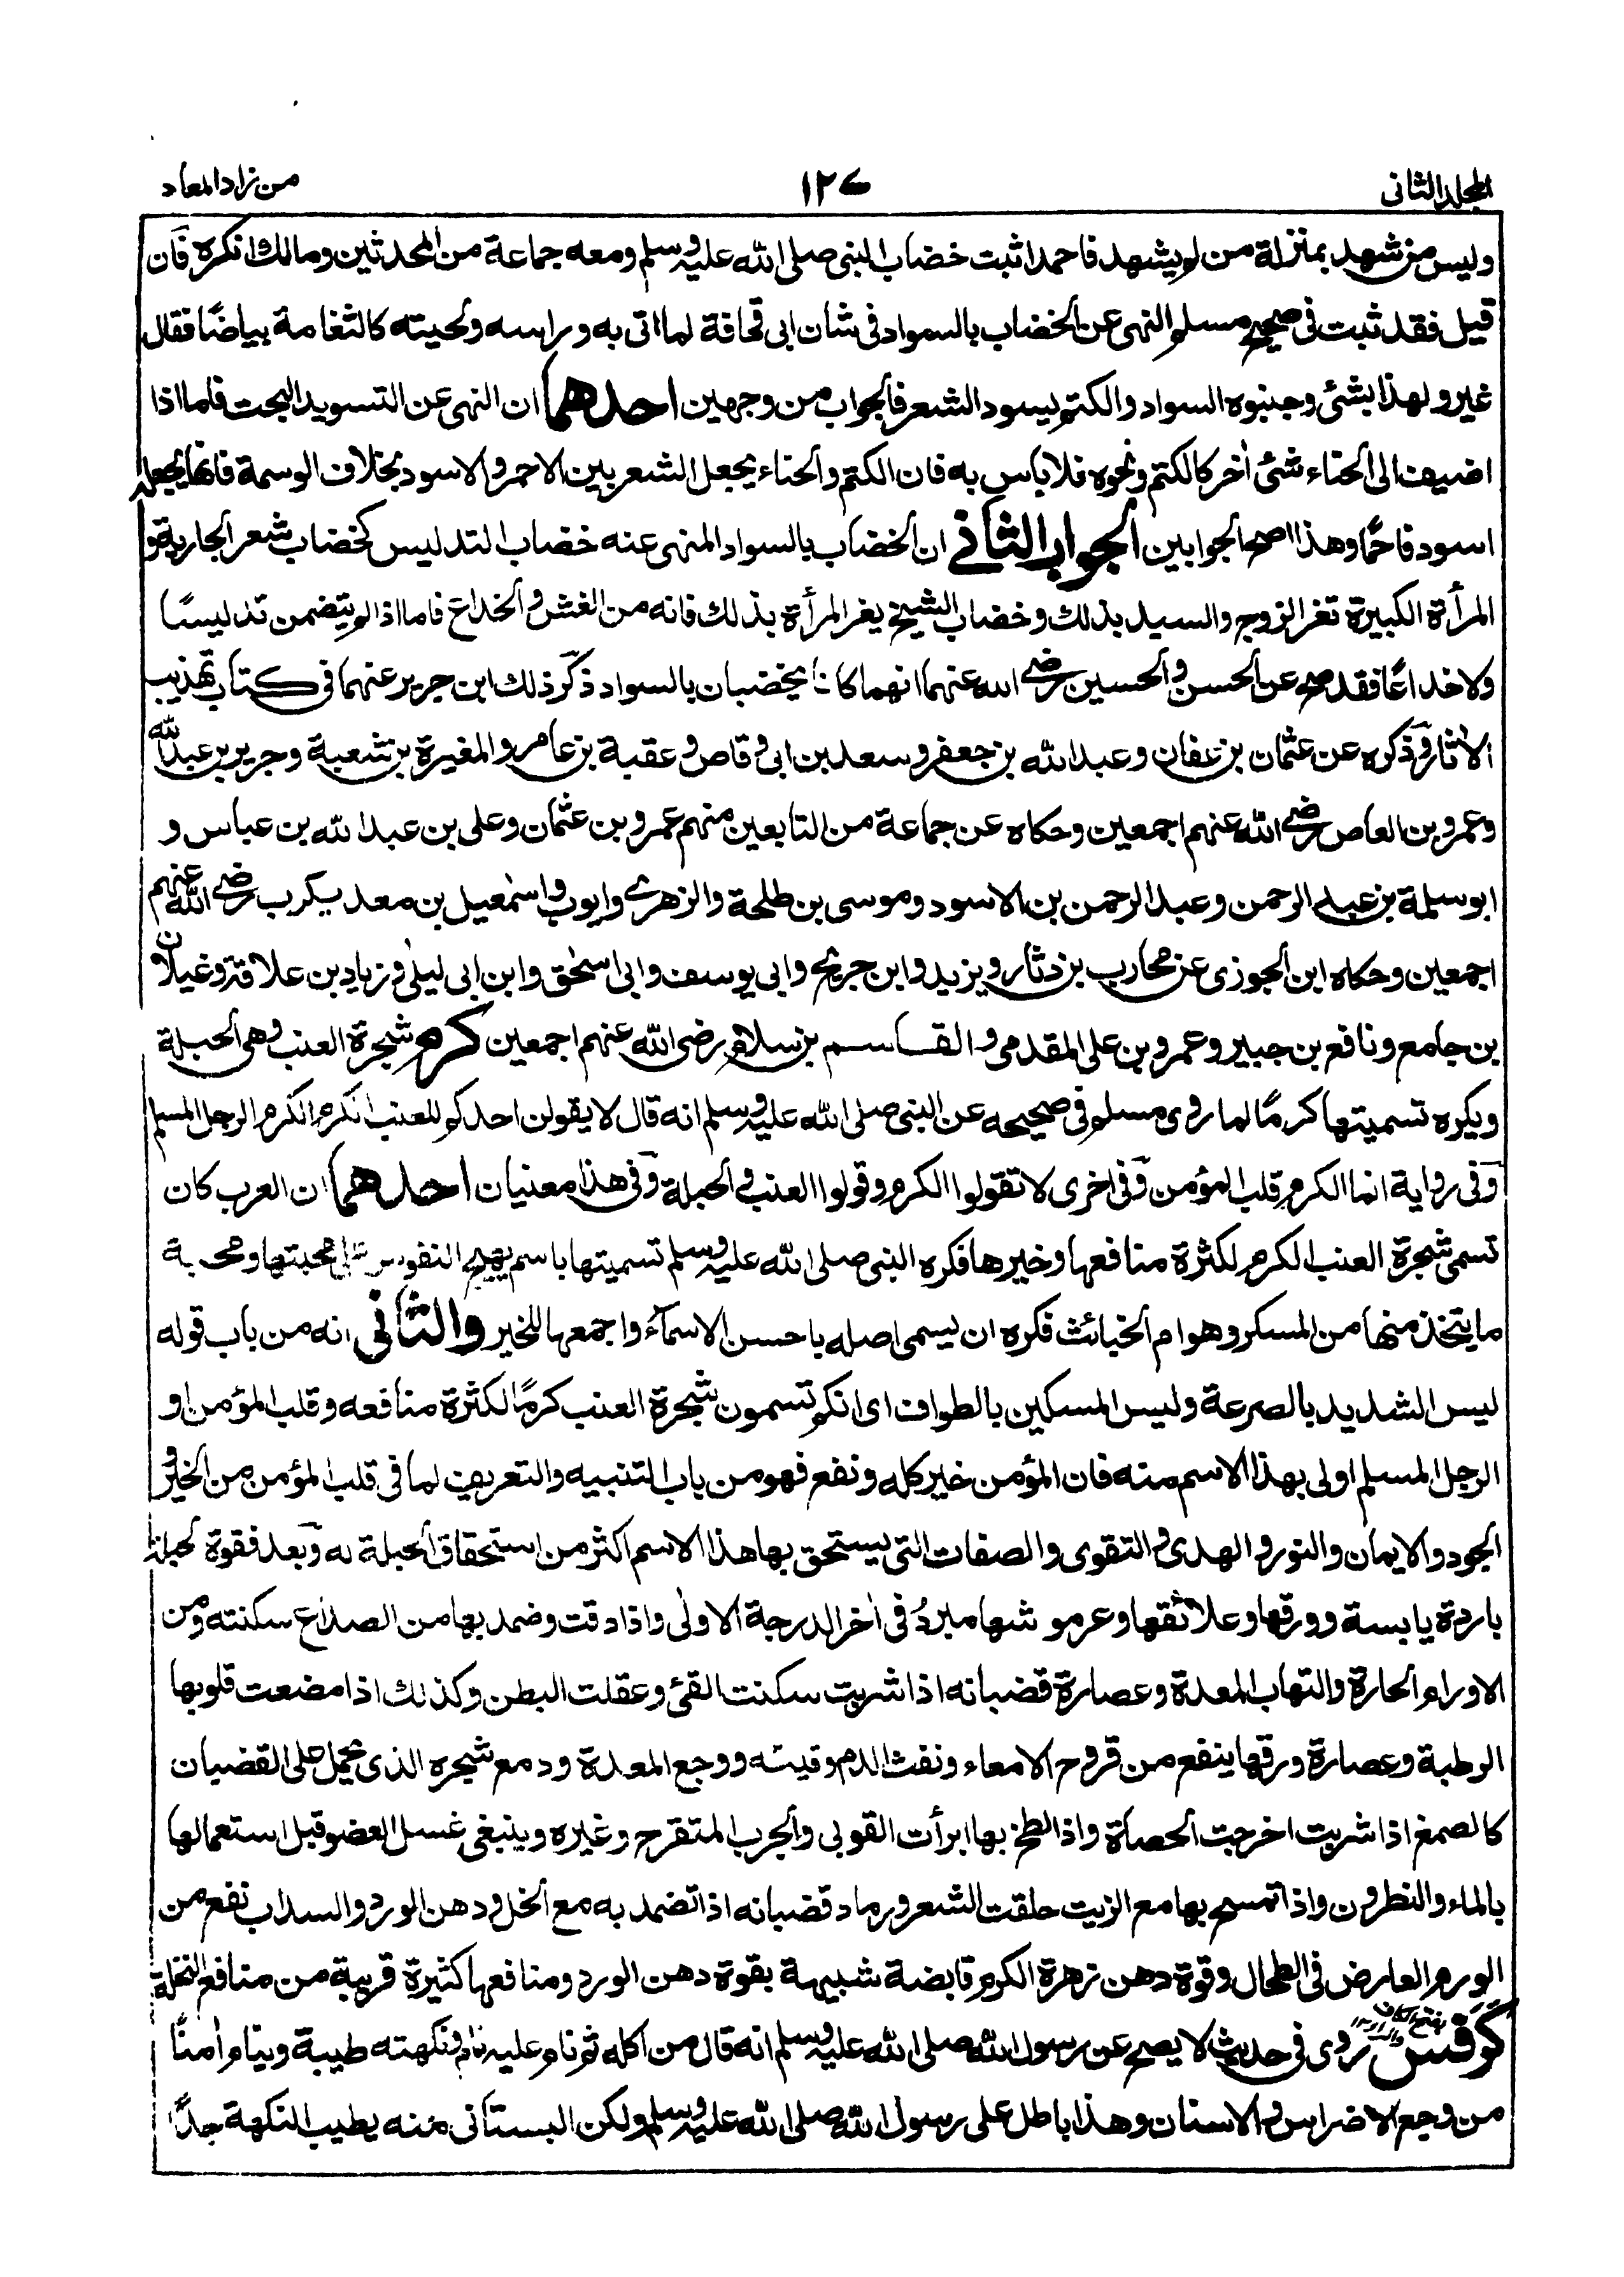 المجلد الثانى
١٢٧
من زاد المعاد
وليس من شهد بمنزلة من لم يشهد فاحمد اثبت خضاب النبى صلى الله عليه وسلم ومعه جماعة من المحدثين ومالك انكره فان
قيل فقد ثبت فى صحيح مسلم النهى عن الخضاب بالسواد فى شان ابى قحافة لما اتى به وراسه ولحيته كالثغامة بياضًا فقال
غيروا لهذا بشئ وجنبوه السواد والكتم يسود الشعر فالجواب من وجهين احدهما ان النهى عن التسويد البحت فاما اذا
اضيف الى الحناء شئ اٰخر كالكتم ونحوه فلا باس به فان الكتم والحناء يجعل الشعر بين الاحمر والاسود بخلاف الوسمة فانها يجعله
اسود فاحمًا وهذا اصح الجوابين الجواب الثانى ان الخضاب بالسواد المنهى عنه خضاب التدليس كخضاب شعر الجارية و
المرأة الكبيرة تغر الزوج والسيد بذلك وخضاب الشيخ يغر المرأة بذلك فانه من الغش والخداع فاما اذا لم يتضمن تدليسًا
ولا خداعًا فقد صح عن الحسن والحسين رضى الله عنهما انهما كانا يخضبان بالسواد ذكر ذلك ابن جرير عنهما فى كتاب تهذيب
الاٰثار وذكره عن عثمان بن عفان وعبد الله بن جعفر وسعد بن ابى وقاص وعقبة بن عامر والمغيرة بن شعبة وجرير بن عبد الله
وعمرو بن العاص رضى الله عنهم اجمعين وحكاه عن جماعة من التابعين منهم عمرو بن عثمان وعلى بن عبد الله بن عباس و
ابو سلمة بن عبد الرحمن وعبد الرحمن بن الاسود وموسى بن طلحة والزهرى وايوب واسمٰعيل بن معد يكرب رضى الله عنهم
اجمعين وحكاه ابن الجوزى عن محارب بن دثار ويزيد وابن جريج وابى يوسف وابى اسحٰق وابن ابى ليلى وزياد بن علاقة وغيلان
بن جامع ونافع بن جبير وعمرو بن على المقدمى و القاسم بن سلام رضى الله عنهم اجمعين كرم شجرة العنب وهى الحبلة
ويكره تسميتها كرمًا لما روى مسلم فى صحيحه عن النبى صلى الله عليه وسلم انه قال لا يقولن احدكم للعنب الكرم الكرم الرجل المسلم
وفى رواية انما الكرم قلب المؤمن وفى اخرى لا تقولوا الكرم وقولوا العنب والحبلة وفى هذا معنيان احدهما ان العرب كان
تسمى شجرة العنب الكرم لكثرة منافعها وخيرها فكره النبى صلى الله عليه وسلم تسميتها باسم يهيج النفوس على محبتها ومحبة
ما يتخذ منها من المسكر وهو ام الخبائث فكره ان يسمى اصله باحسن الاسماء واجمعها للخير والثانى انه من باب قوله
ليس الشديد بالصرعة وليس المسكين بالطواف اى انكم تسمون شجرة العنب كرمًا لكثرة منافعه وقلب المؤمن او
الرجل المسلم اولى بهذا الاسم منه فان المؤمن خير كله ونفع فهو من باب التنبيه والتعريف لما فى قلب المؤمن من الخير و
الجود والايمان والنور و الهدى والتقوى والصفات التى يستحق بها هذا الاسم اكثر من استحقاق الحبلة له وبعد فقوة الحبلة
باردة يابسة وورقها وعلائقها وعرموشها مبردُ فى اٰخر الدرجة الاولٰى واذا دقت وضمد بها من الصداع سكنته ومن
الاورام الحارة والتهاب المعدة وعصارة قضبانه اذا شربت سكنت القئ وعقلت البطن وكذلك اذا مضعت قلوبها
الرطبة وعصارة ورقها ينفع من قروح الامعاء ونفث الدم وقيئه ووجع المعدة ودمع شجره الذى يحمل على القضبان
كالصمغ اذا شربت اخرجت الحصاة واذا لطخ بها ابرأت القوبى والجرب المتقرح وغيره وينبغى غسل العضو قبل استعمالها
بالماء والنطرون واذا تمسح بها مع الزيت حلقت الشعر ورماد قضبانه اذا تضمد به مع الخل ودهن الورد والسداب نفع من
الورم العارض فى الطحال وقوة دهن زهرة الكرم قابضة شبيهة بقوة دهن الورد ومنافعها كثيرة قريبة من منافع النخلة
كَرَفس روى فى حديث لا يصح عن رسول الله صلى الله عليه وسلم انه قال من اكله ثم نام عليه نام ونكهته طيبة وينام اٰمنًا
من وجع الاضراس والاسنان وهذا باطل على رسول الله صلى الله عليه وسلم ولكن البستانى منه يطيب النكهة جدًّا